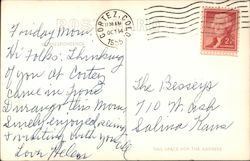 POST CARD
CORTEZ, COLO.
11:30 AM
OCT 14
Friday Morn.
CORRESPONDENCE
Hi Folks: Thinking
of you At Cortez
Came in from
Durango this Morn.
Surely enjoyed seeing
& visiting with you
Love Helen
2¢
The Besseys
710 W. Ash
Salina Kans
THIS SPACE FOR THE ADDRESS